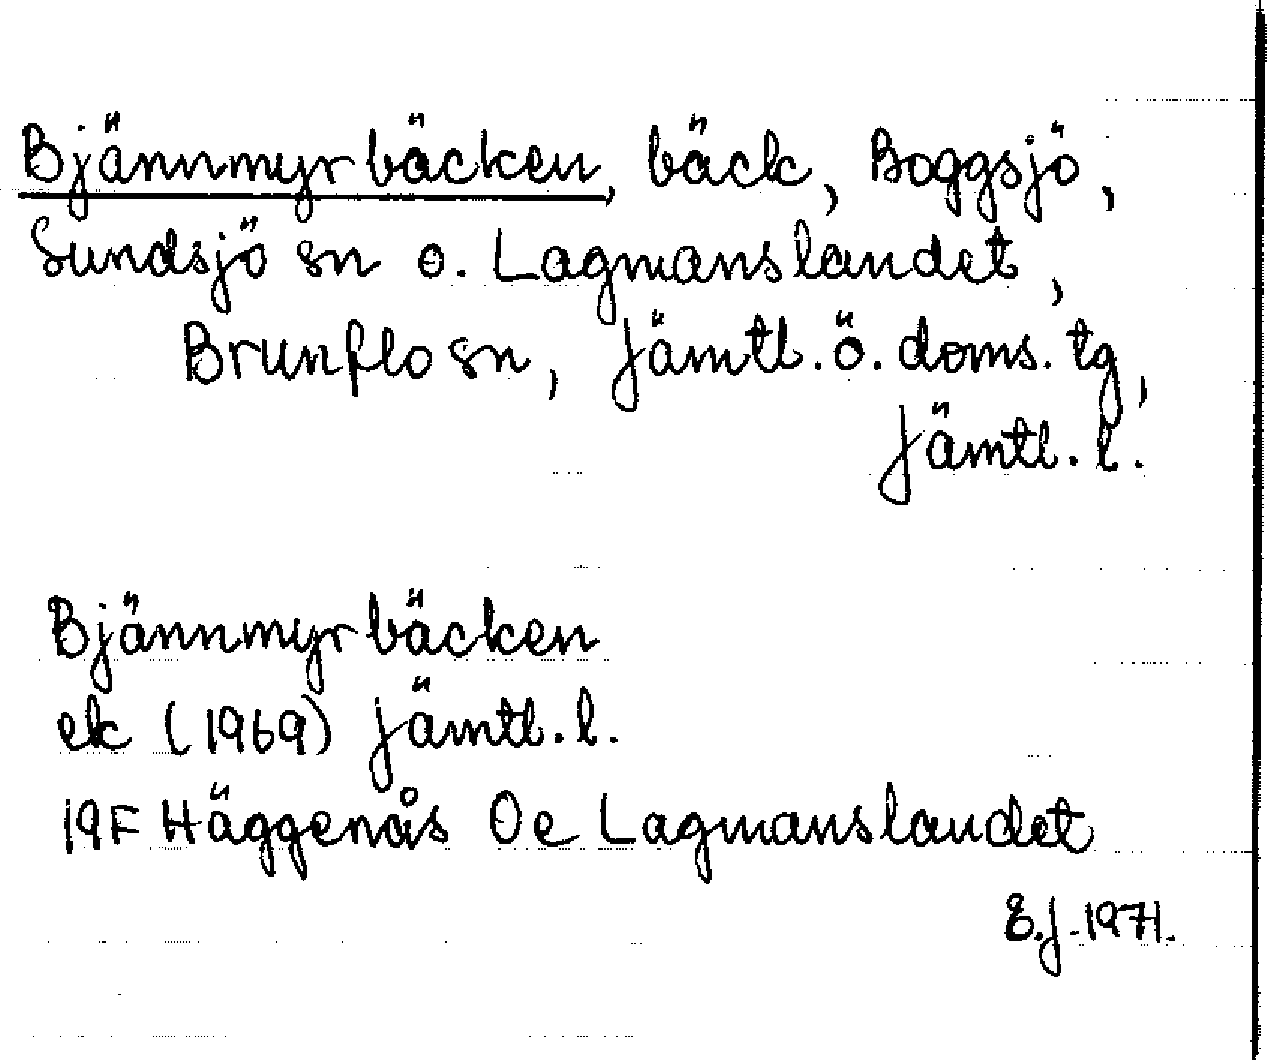 Bjännmyrbäcken, bäck, Boggsjö,
Sundsjö sn o. Lagmanslandet,
Brunflo sn, Jämtl. ö. doms. tg,
Jämtl. l.
Bjännmyrbäcken
ek (1969) Jämtl. l.
19F Häggenås Oe Lagmanslandet
E.J. 1971.